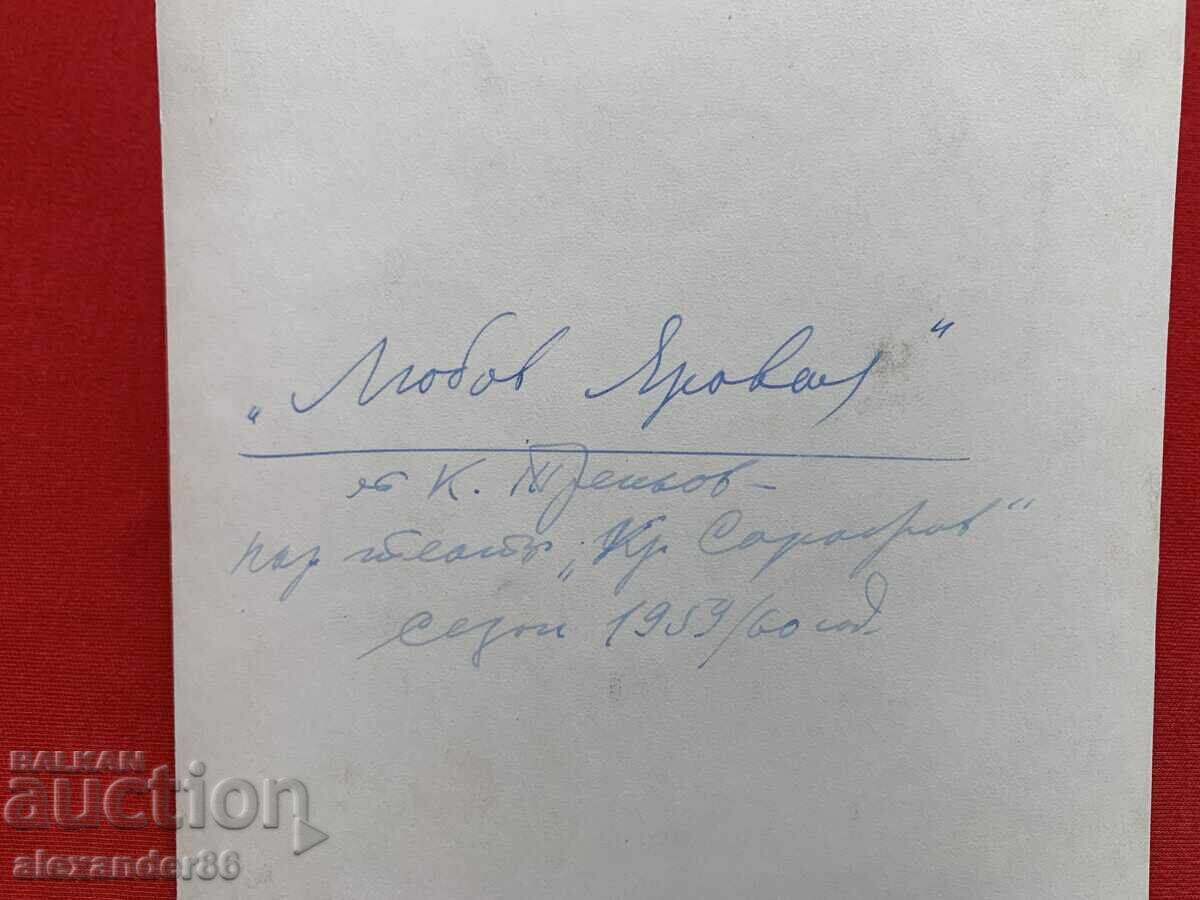 „Любов Яровая"
от К. Треньов -
нар. театър „Кр. Сарафов"
сезон 1959/60 год.
BALKAN
auction
alexander86